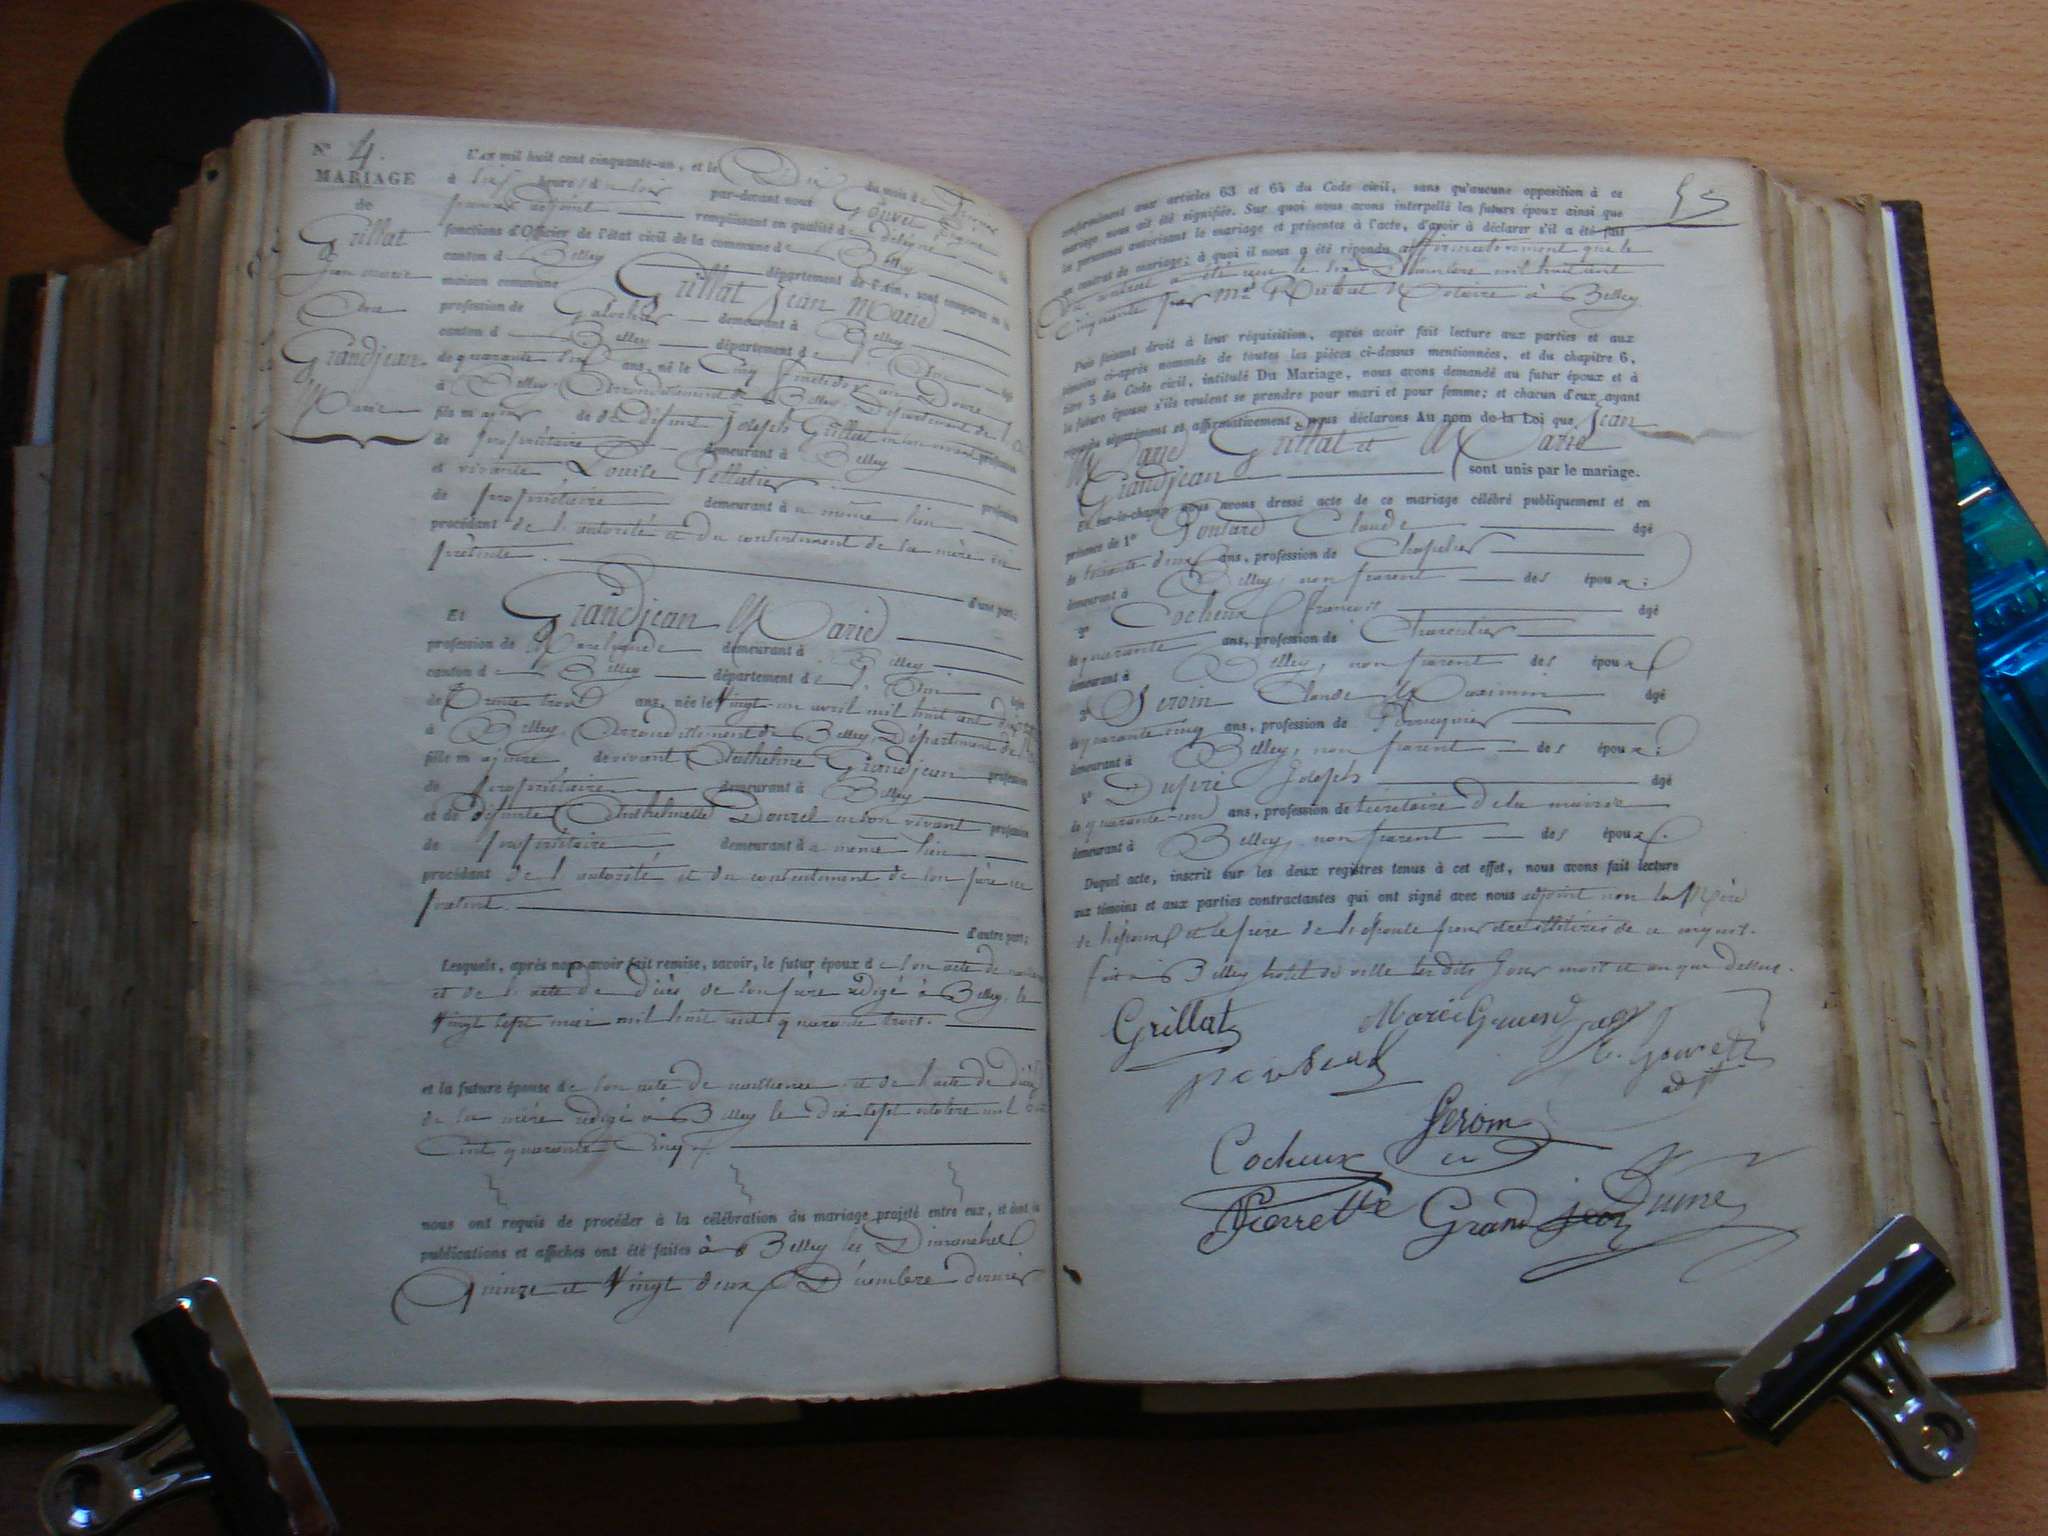 N° 4.
MARIAGE
de
Grillat
Jean marie
Et
Grandjean
Marie
L'an mil huit cent cinquante-un, et le Dix du mois de
à heures du soir par-devant nous Gouvet
premier adjoint remplissant en qualité de délégué les
fonctions d'Officier de l'état civil de la commune de Belley
canton de Belley département de l'Ain, sont comparus en la
maison commune Grillat Jean Marie
profession de Galochier demeurant à Belley
canton de Belley département de l'Ain âgé
de quarante ans, né le Cinq fructidor an Douze
à Belley, Arrondissement de Belley, Département de l'Ain
fils majeur de défunt Joseph Grillat en son vivant profession
de propriétaire demeurant à Belley
et vivante Louise Pellatier profession
de propriétaire demeurant au même lieu
procédant de l'autorité et du consentement de sa mère ici
présente. d'une part;
Et Grandjean Marie
profession de demeurant à Belley
canton de Belley département de l'Ain âgée
de Trente trois ans, née le Vingt un avril mil huit cent dix sept
à Belley, Arrondissement de Belley, Département de l'Ain
fille majeure de vivant Anthelme Grandjean profession
de propriétaire demeurant à Belley
et de défunte Anthelmette Dourel en son vivant profession
de propriétaire demeurant au même lieu
procédant de l'autorité et du consentement de son père ici
présent. d'autre part;
Lesquels, après nous avoir fait remise, savoir, le futur époux de son acte de naissance
et de l'acte de Décès de son père rédigé à Belley le
Vingt sept mai mil huit cent quarante trois.
et la future épouse de son acte de naissance et de l'acte de Décès
de sa mère rédigé à Belley le Dix sept octobre mil huit
Cent quarante Cinq
nous ont requis de procéder à la célébration du mariage projeté entre eux, et dont les
publications et affiches ont été faites à Belley les Dimanches
Quinze et Vingt deux Décembre dernier
conformément aux articles 63 et 64 du Code civil, sans qu'aucune opposition à ce
mariage nous ait été signifiée. Sur quoi nous avons interpellé les futurs époux ainsi que
les personnes autorisant le mariage et présentes à l'acte, d'avoir à déclarer s'il a été fait
un contrat de mariage; à quoi il nous a été répondu affirmativement que le
Dit contrat a été reçu le six Décembre mil huit cent
Cinquante par Me Notaire à Belley.
Puis faisant droit à leur réquisition, après avoir fait lecture aux parties et aux
témoins ci-après nommés de toutes les pièces ci-dessus mentionnées, et du chapitre 6,
titre 5 du Code civil, intitulé Du Mariage, nous avons demandé au futur époux et à
la future épouse s'ils veulent se prendre pour mari et pour femme; et chacun d'eux ayant
répondu séparément et affirmativement, nous déclarons Au nom de la Loi que Jean
Marie Grillat et Marie
Grandjean sont unis par le mariage.
Et sur-le-champ nous avons dressé acte de ce mariage célébré publiquement et en
présence de 1° Claude âgé
de soixante deux ans, profession de Chapelier
demeurant à Belley, non parent des époux;
2° Cocheux françois âgé
de quarante ans, profession de Charpentier
demeurant à Belley, non parent des époux
3° Serom Claude Maximin âgé
de quarante cinq ans, profession de Perruquier
demeurant à Belley, non parent des époux;
4° Joseph âgé
de quarante un ans, profession de secrétaire de la mairie
demeurant à Belley non parent des époux.
Duquel acte, inscrit sur les deux registres tenus à cet effet, nous avons fait lecture
aux témoins et aux parties contractantes qui ont signé avec nous adjoint non la Mère
de l'époux et le père de l'épouse pour être illitérés de ce enquis.
fait à Belley hôtel de ville les dits Jour mois et an que dessus.
Grillat
Gouvet
adjt
Serom
Cocheux
Pierrette Grandjean